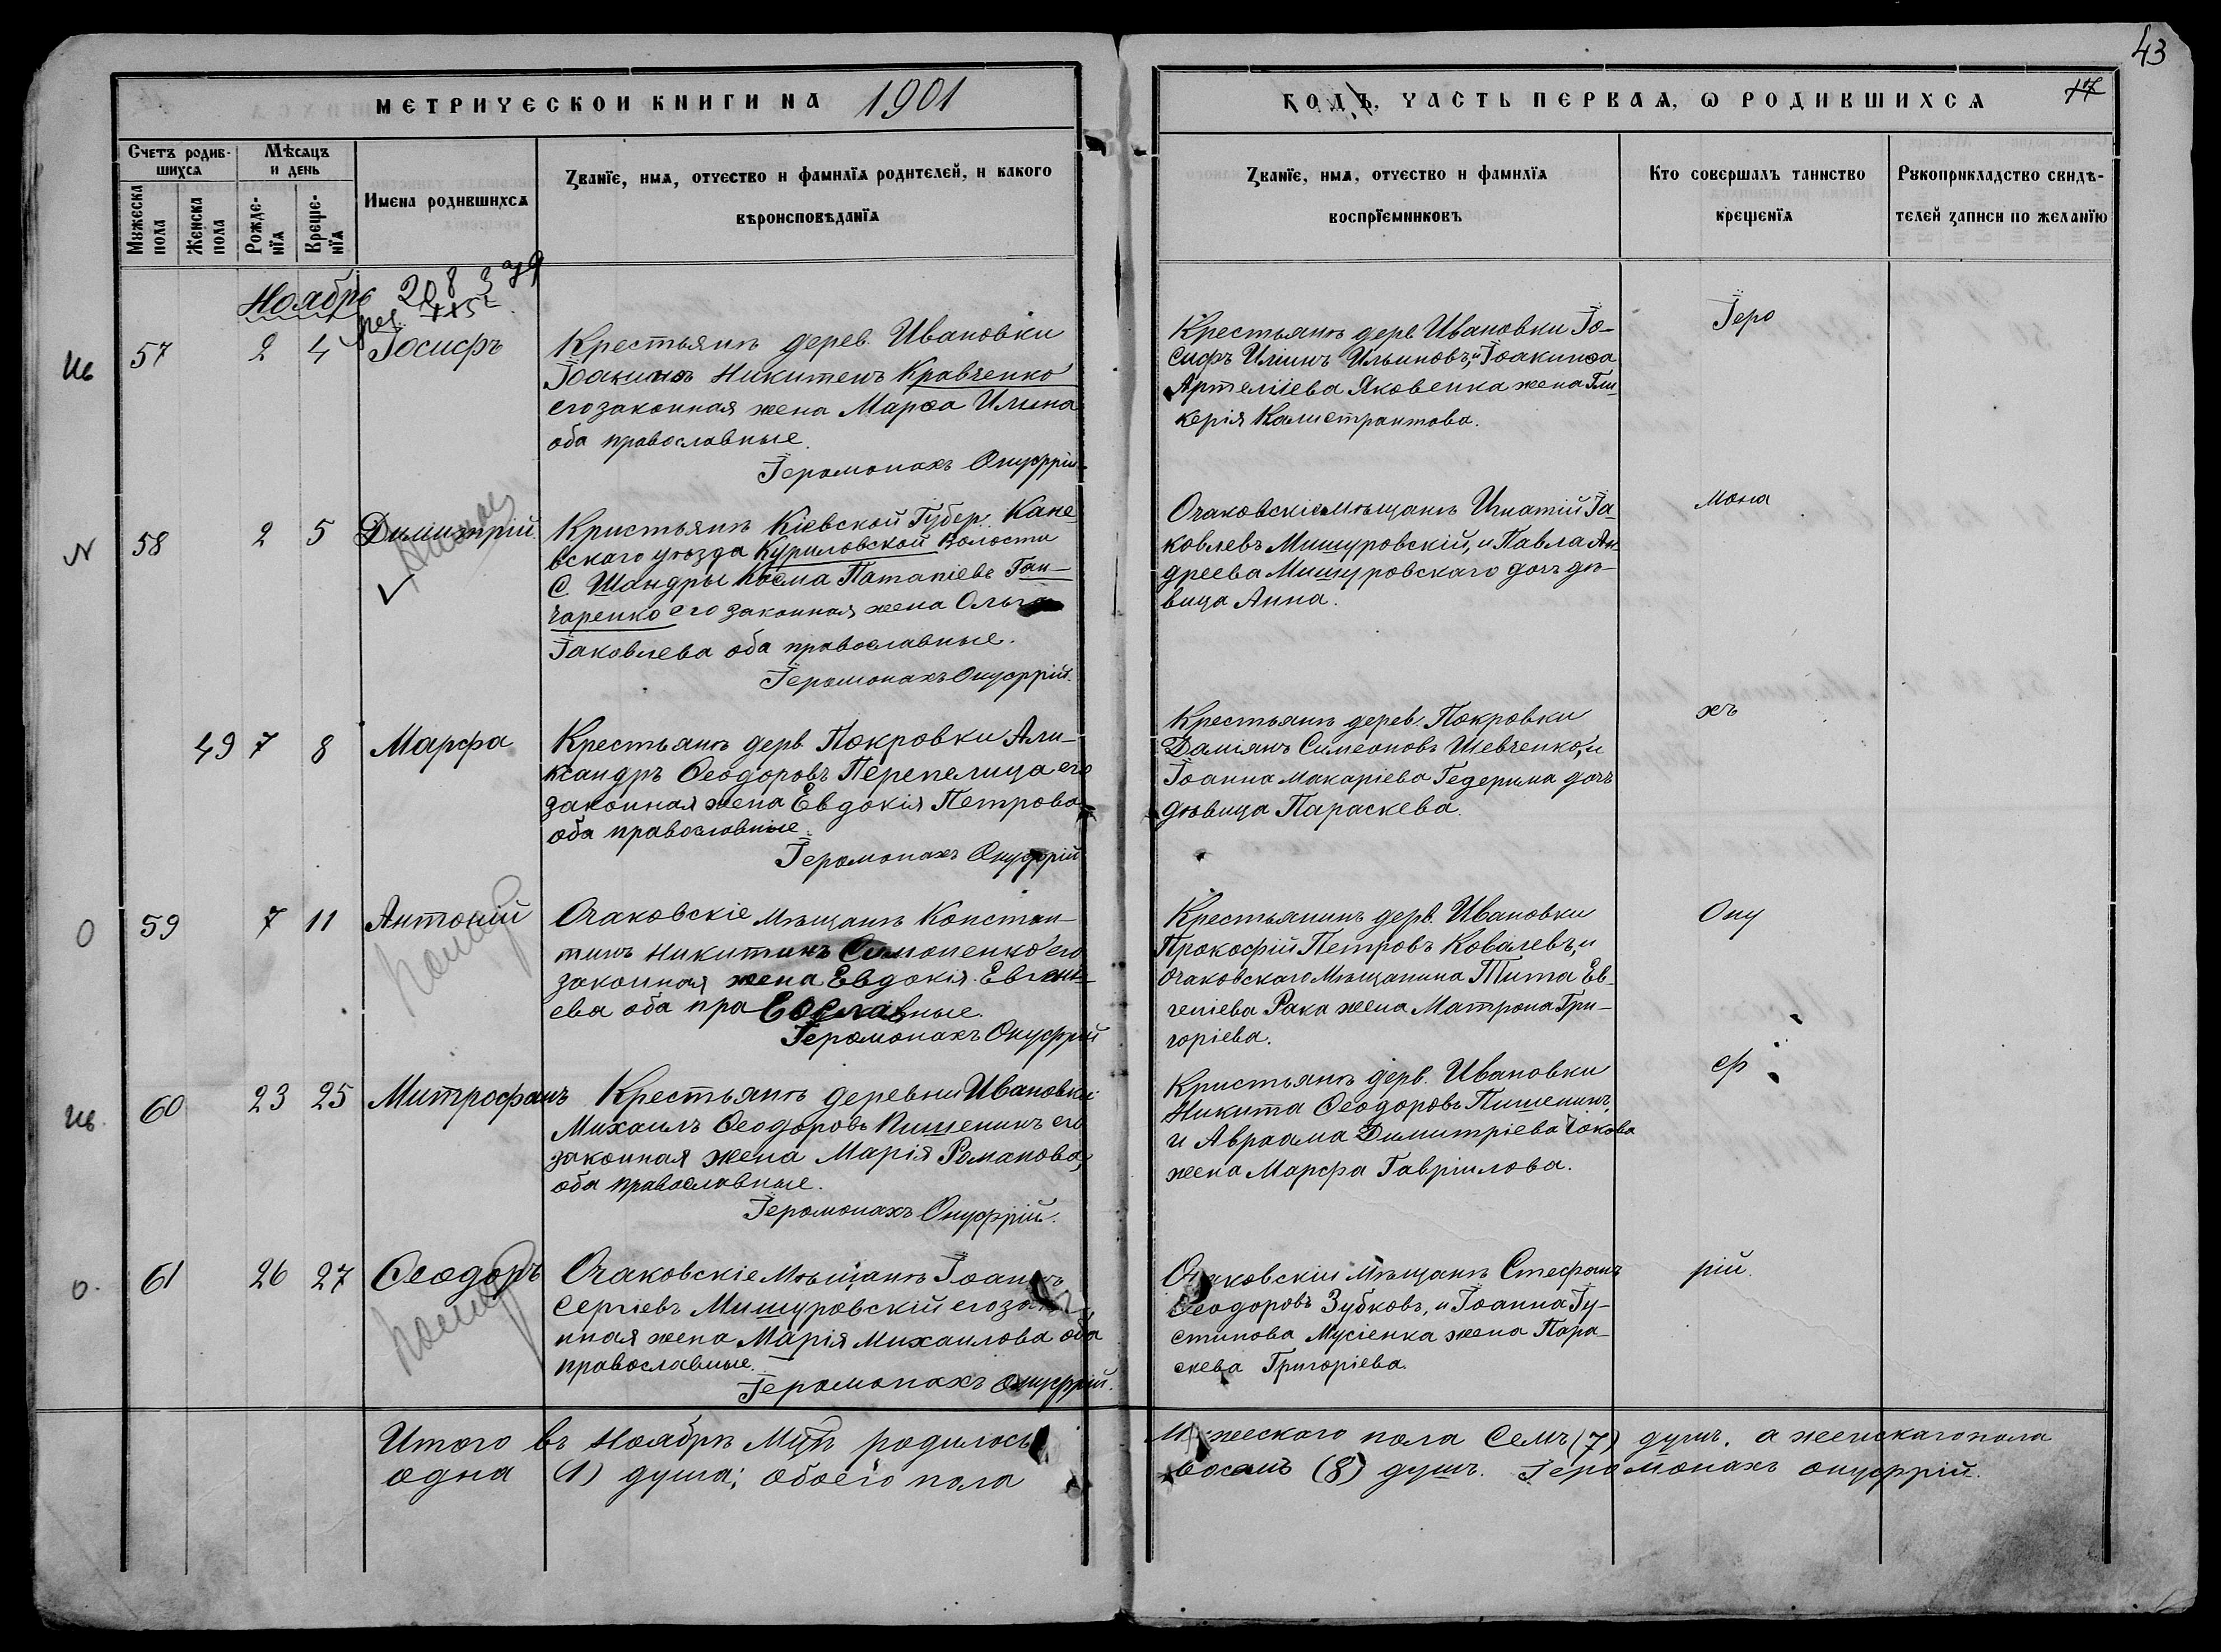 43
17
МЕТРИЧЕСКОЙ КНИГИ НА 1901
ГОДЪ, ЧАСТЬ ПЕРВАЯ, Ѡ РОДИВШИХСЯ
Счетъ родившихся
Мужеска пола
Женска пола
Мѣсяцъ и день
Рожденїя
Крещенїя
Имена родившихся
Званїе, имя, отчество и фамилїя родителей, и какого
вѣроисповѣданїя
Званїе, имя, отчество и фамилїя
воспрїемниковъ
Кто совершалъ таинство
крещенїя
Рукоприкладство свидѣ-
телей записи по желанїю
Ноябрь
Ив
57 2 4 Іосифъ
Крестьянѣ дерев. Ивановки
Іоакимъ Никитенъ Кравченко
его законная жена Марѳа Илына
оба православные.
Іеромонахъ Онуфрій.
Крестьянѣ дерв Ивановки Іо-
сифъ Иліинъ Ильиновъ, и Іоакинѳа
Артеміева Яковенка жена Гли-
керія Калистратова.
Іеро
N
58 2 5 Димитрій.
Кристьянѣ Кіевской Губер. Кане-
вскаго уѣзда Куриловской Волости
С. Шандры Косма Патапіевъ Ган-
чаренко его законная жена Ольга
Іаковлева оба православные.
Іеромонахъ Онуфрій.
Очаковскіе мѣщанѣ Игнатій Іа-
ковлевъ Мишуровскій, и Павла Ан-
дреева Мишуровскаго дочь дѣ-
вица Анна.
мона
49 7 8 Марфа
Крестьянѣ дерв. Покровки Але-
ксандръ Ѳеодоровъ Перепелица его
законная жена Евдокія Петрова
оба православные.
Іеромонахъ Онуфрій
Крестьянѣ дерев. Покровки
Даміанъ Симеоновъ Шевченко, и
Іоанна Макаріева Гедерима дочь
дѣвица Параскева.
хъ
О
59 7 11 Антоній
Очаковскіе мѣщанѣ Констан-
тинъ Никитинъ Симоненко его
законная жена Евдокія Евгені-
ева оба православные.
Іеромонахъ Онуфрій
Крестьянинъ дерв. Ивановки
Прокофій Петровъ Ковалевъ, и
Очаковскаго мѣщанина Тита Ев-
геніева Рака жена Матрона Гри-
горіева.
Ону
Ив.
60 23 25 Митрофанъ
Крестьянѣ деревни Ивановки
Михаилъ Ѳеодоровъ Пишенинъ его
законная жена Марія Романова,
оба православные.
Іеромонахъ Онуфрій.
Кристьянѣ дерв. Ивановки
Никита Ѳеодоровъ Пишенинъ,
и Авраама Димитріева Чокова
жена Марфа Гавріилова.
ф
О.
61 26 27 Ѳеодоръ
Очаковскіе мѣщанѣ Іоаннъ
Сергіевъ Мишуровскій его зако-
нная жена Марія Михаилова оба
православные.
Іеромонахъ Онуфрій.
Очаковскіи мѣщанѣ Стефанъ
Ѳеодоровъ Зубковъ, и Іоанна Іу-
стинова Мусіенка жена Пара-
скева Григоріева.
рій.
Итого въ Ноябрѣ Мцѣ родилось Мужескаго пола Семь (7) душъ, а женскаго пола
одна (1) душа; обоего пола восемь (8) душъ. Іеромонахъ Онуфрій.